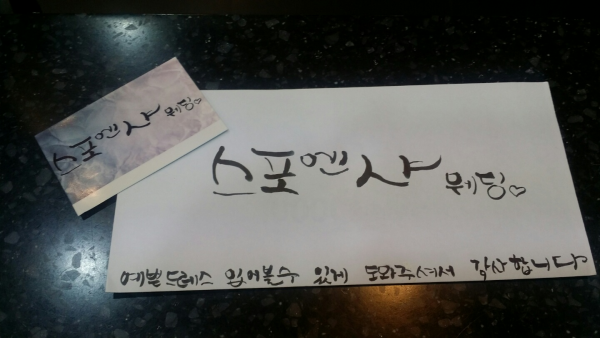 스포엔샤 웨딩♡
스포엔샤 웨딩♡
예쁜드레스 입어볼수 있게 도와주셔서 감사합니다